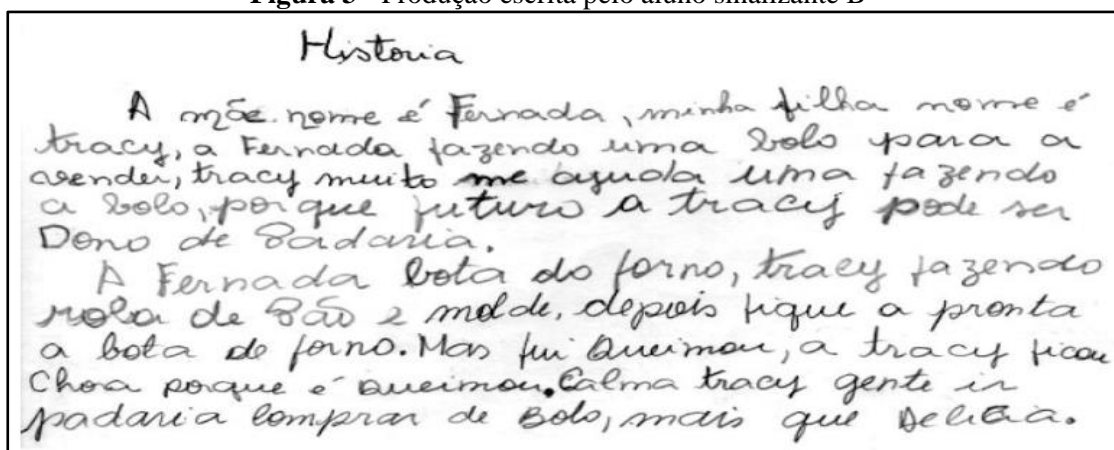 Figura 3 - Produção escrita pelo aluno sinalizante B
Historia
A mãe nome é Fernada, minha filha nome é
tracy, a Fernada fazendo uma bolo para a
vender, tracy muito me ajuda uma fazendo
a bolo, porque futuro a tracy pode ser
Dono de Padaria.
A Fernada bota do forno, tracy fazendo
rola de Pão e molde, depois fique a pronta
a bota de forno. Mas fui Queimou, a tracy ficou
Chora porque é queimou. Calma tracy gente ir
padaria comprar de Bolo, mais que Delicia.